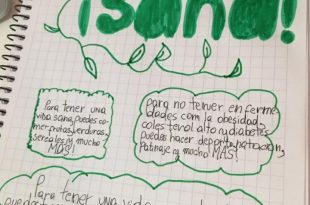 ¡sana!
Para tener una
vida sana, puedes co
mer frutas, verduras,
sereales y mucho
MÁS!!
para no tener enferme
dades com la obesidad,
coles terol alto y diabetes,
puedes hacer deporte, natación,
Patinaje y mucho MÁS!
Para tener una vida